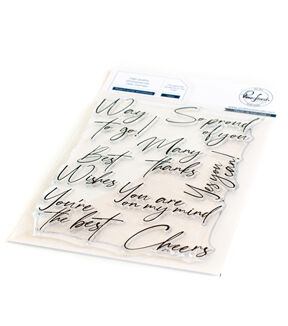 Pinkfresh
Way
to go!
So proud
of you
Best
Wishes
Many
thanks
Yes you
can
You're
the best
You are
on my mind
Cheers